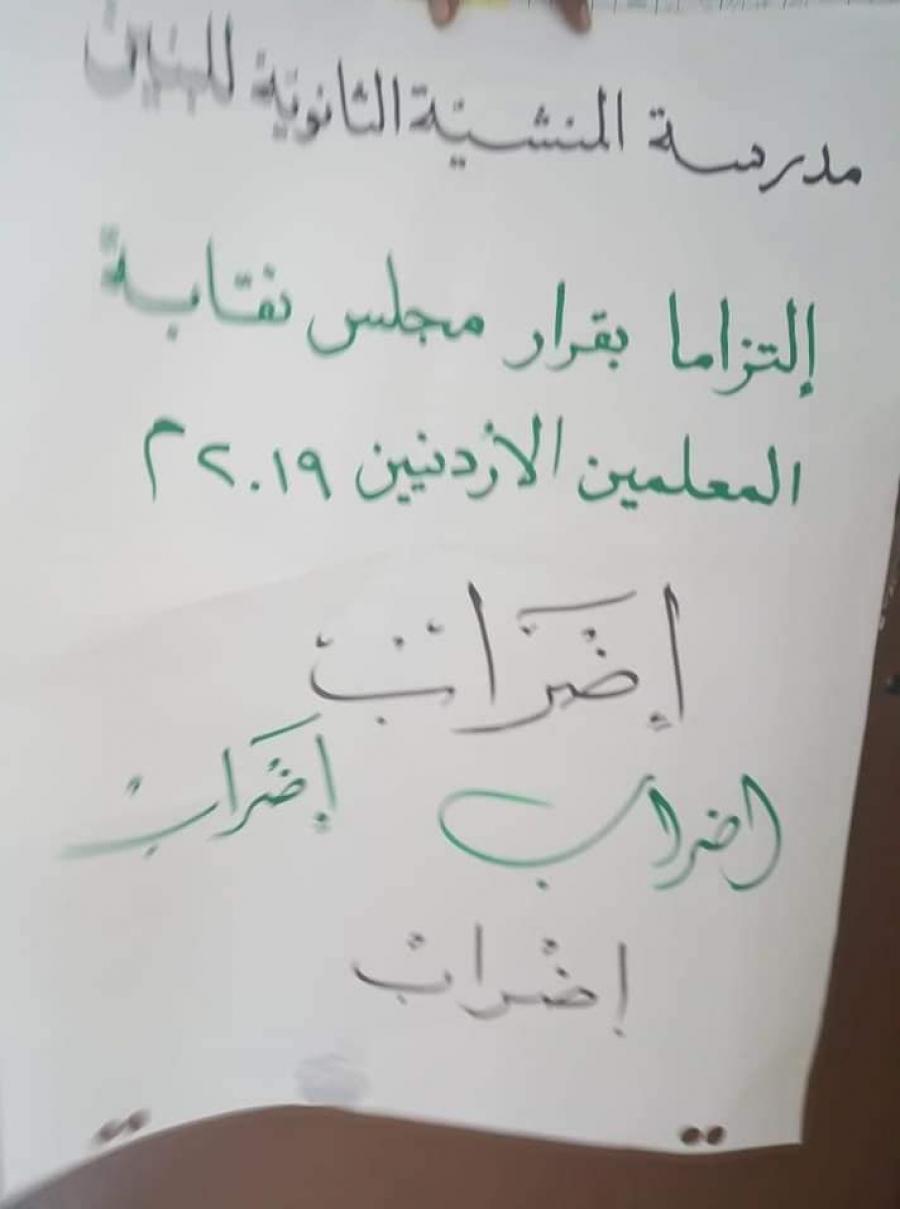 مدرسة المنشية الثانوية للبنين
إلتزاما بقرار مجلس نقابة
المعلمين الأردنيين ٢٠١٩م
إضَرَابْ
اضراب إضَرَابْ
إضْرابْ